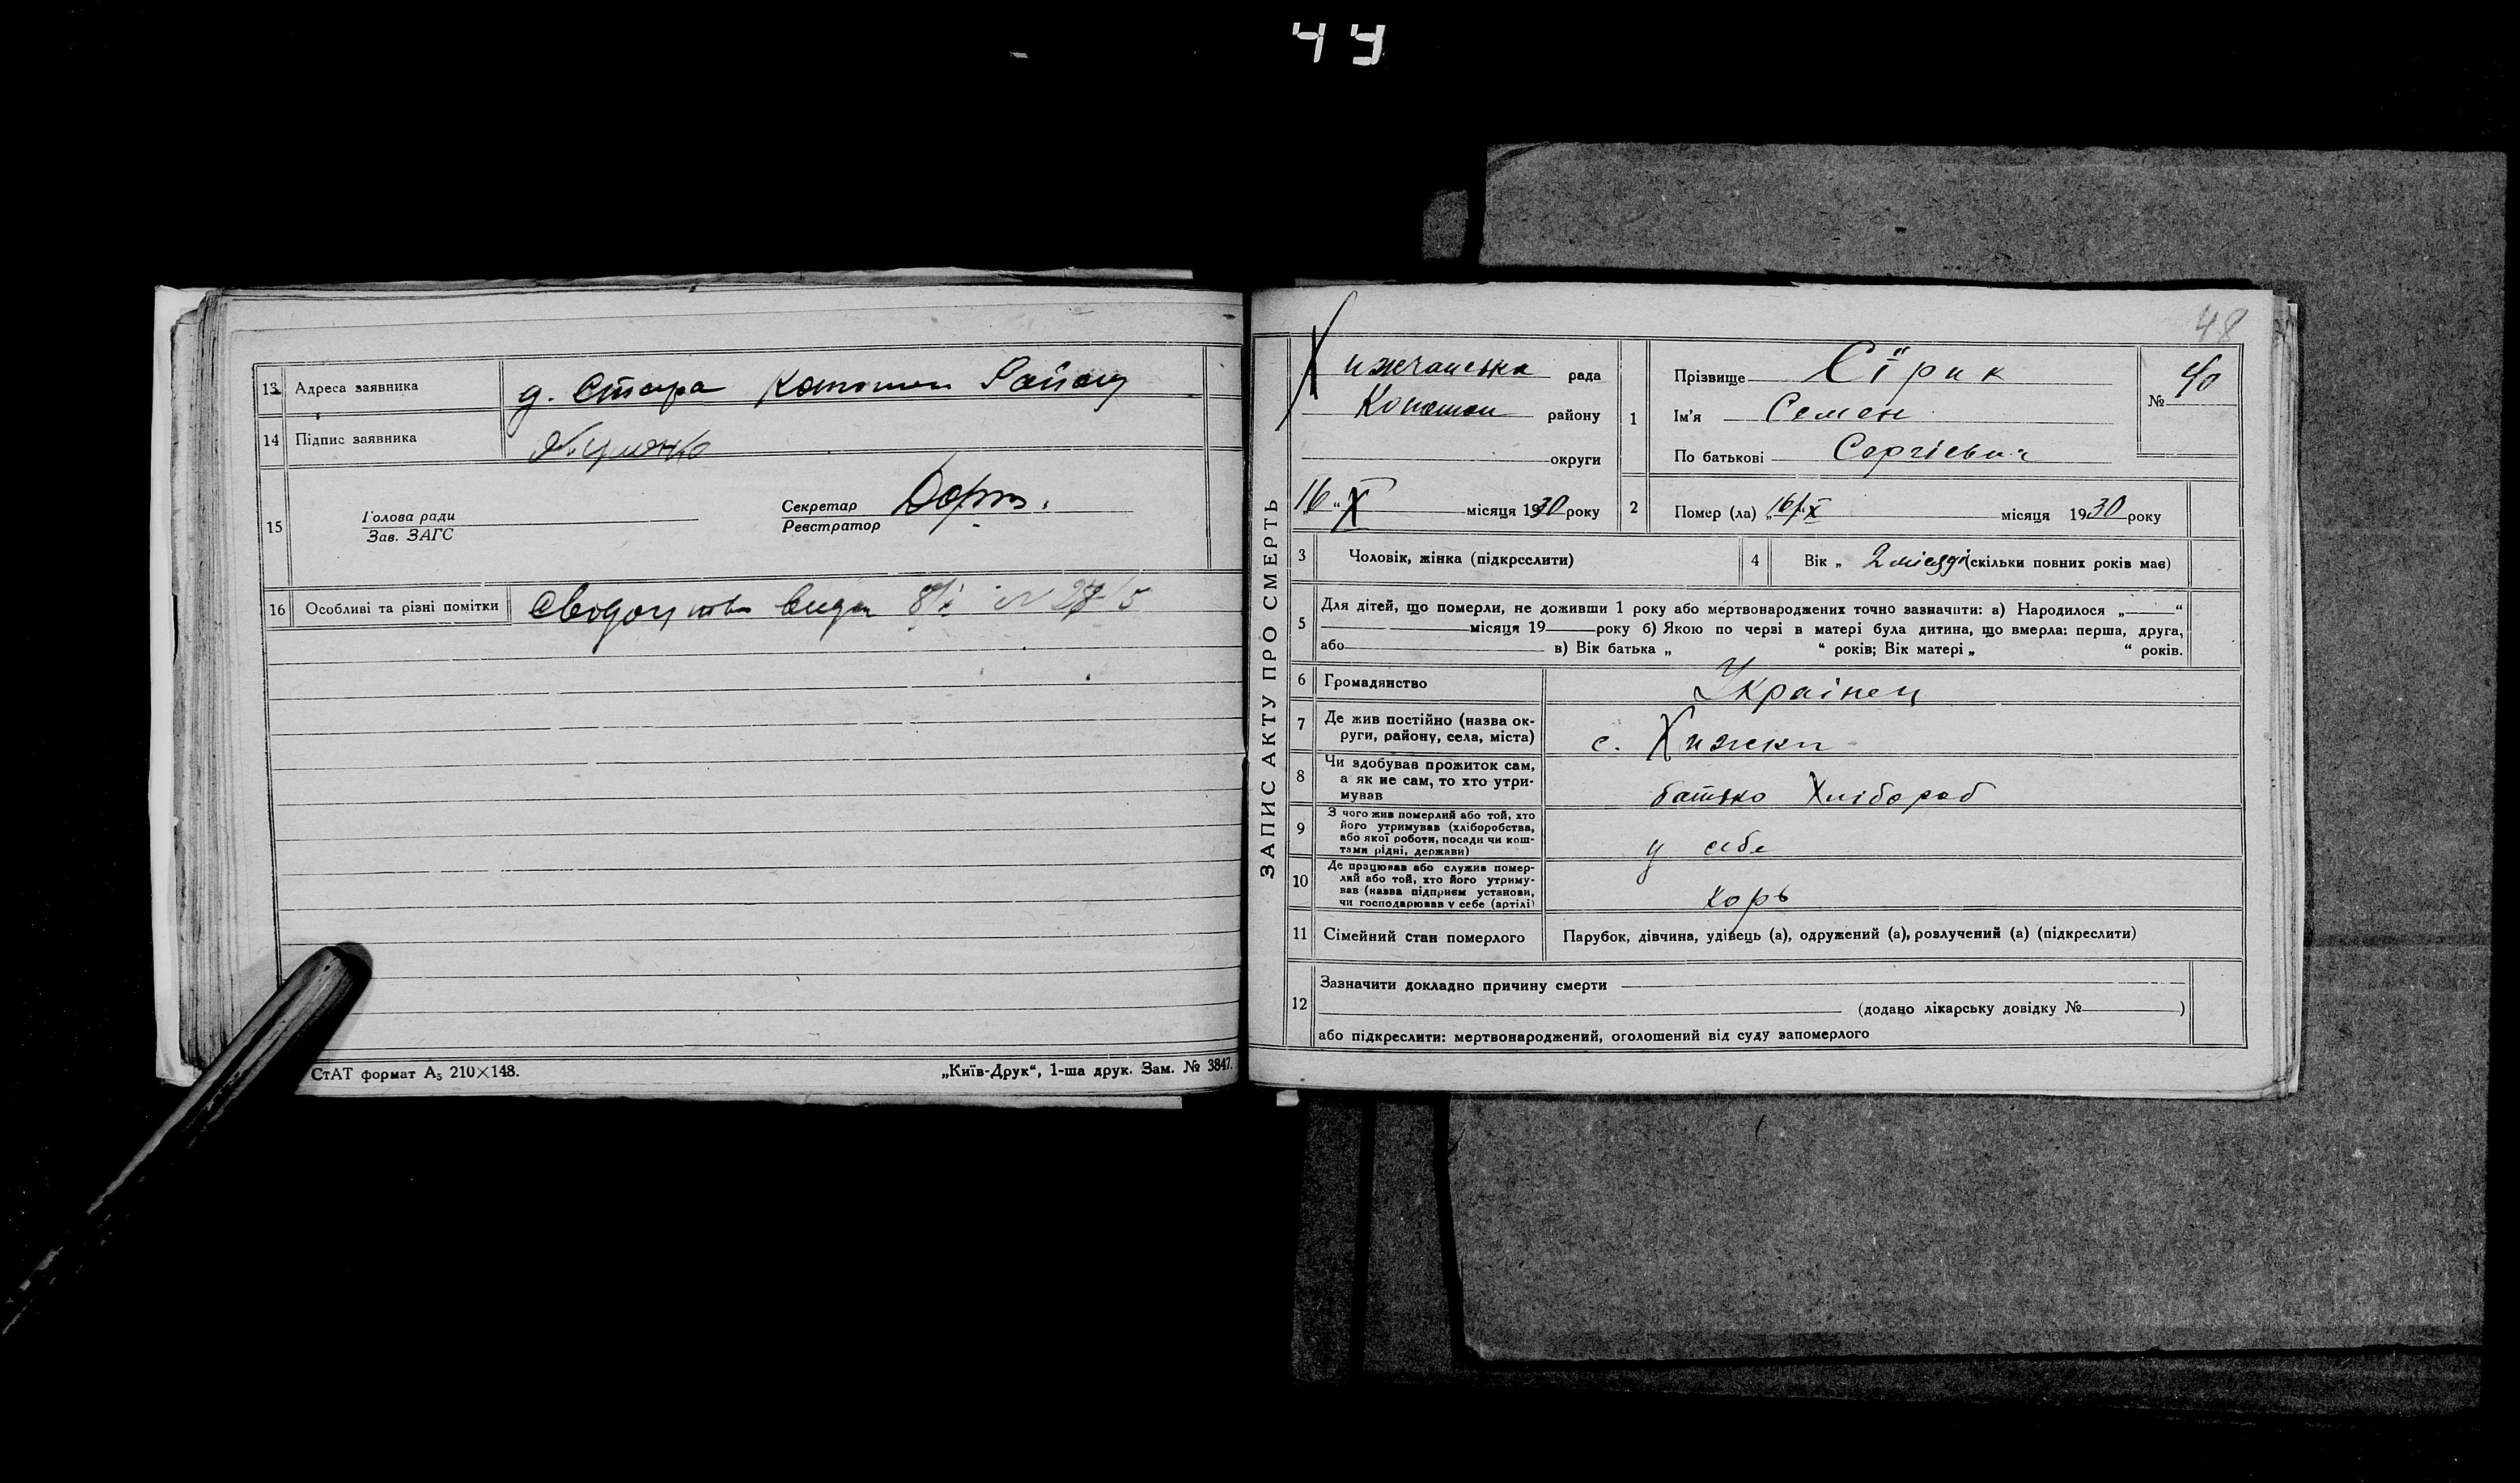 44
13 Адреса заявника д. Стара Конотоп Району
14 Підпис заявника
15 Голова ради
Зав. ЗАГС
Секретар
Реєстратор
16 Особливі та різні помітки Свидоцтво видан 8/X N 27/5
СтАТ формат А₅ 210×148.
„Київ-Друк“, 1-ша друк. Зам. № 3847.
48
ЗАПИС АКТУ ПРО СМЕРТЬ
Хижчанська рада
Конотоп району
округи
16 „X місяця 1930 року
1 Прізвище Сірик
Ім'я Семен
По батькові Сергієвич
№ 40
2 Помер (ла) „16/X місяця 1930 року
3 Чоловік, жінка (підкреслити)
4 Вік „ 2 місяці (скільки повних років має)
5 Для дітей, що померли, не доживши 1 року або мертвонароджених точно зазначити: а) Народилося „ “
місяця 19 року б) Якою по черзі в матері була дитина, що вмерла: перша, друга,
або в) Вік батька „ “ років; Вік матері „ “ років.
6 Громадянство Українец
7 Де жив постійно (назва ок-
руги, району, села, міста) с. Хижки
8 Чи здобував прожиток сам,
а як не сам, то хто утри-
мував батько Хлібороб
9 З чого жив померлий або той, хто
його утримував (хліборобства,
або якої роботи, посади чи кош-
тами рідні, держави) у себе
10 Де працював або служив помер-
лий або той, хто його утриму-
вав (назва підприєм установи,
чи господарював у себе (артілі) Корь
11 Сімейний стан померлого Парубок, дівчина, удівець (а), одружений (а), розлучений (а) (підкреслити)
12 Зазначити докладно причину смерти
(додано лікарську довідку № )
або підкреслити: мертвонароджений, оголошений від суду запомерлого